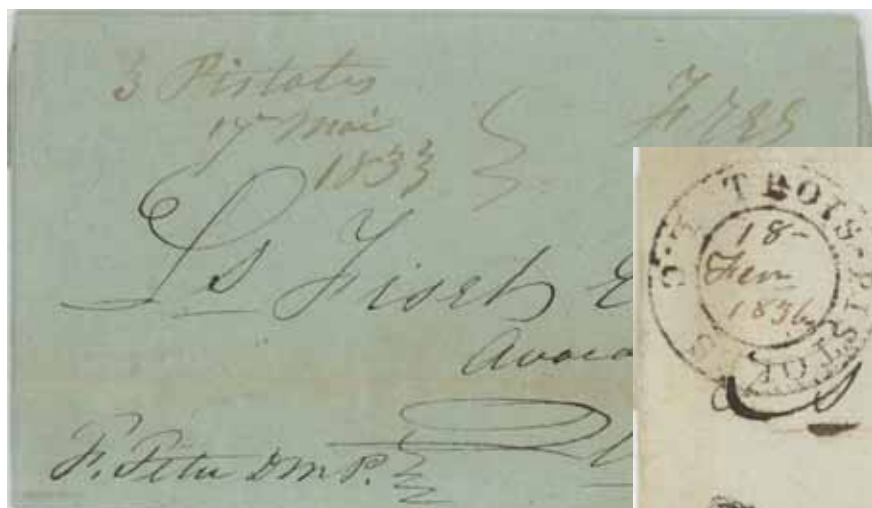 3 Pistoles
17 Mai
1833
Free
Ls Fiset E
Avoca
F. Tetu D M P.
TROIS-PISTOLES
18-
Fev
1836